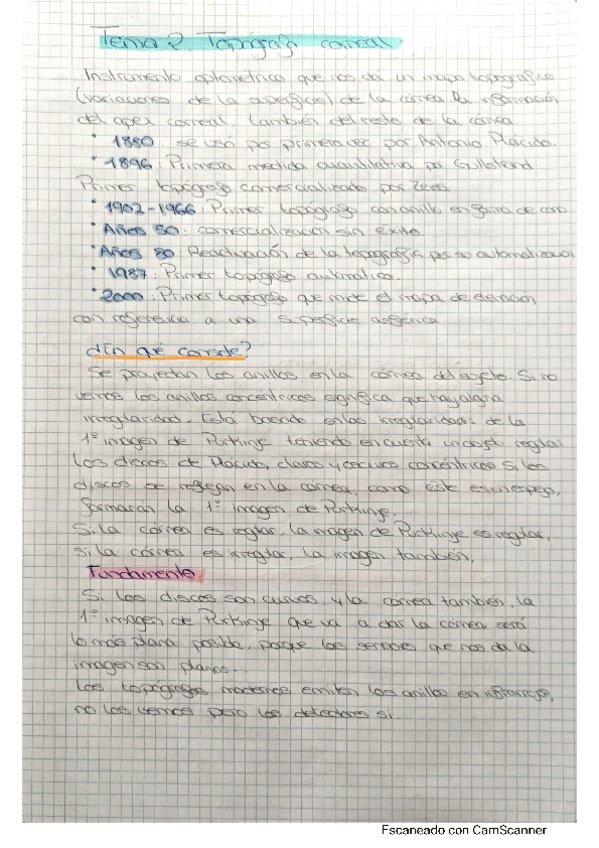 Tema 2 Topógrafo corneal
Instrumento optométrico que nos da un mapa topográfico
(variaciones de la superficie) de la córnea. Da información
del apex corneal, también del resto de la córnea.
* 1880 se usó por primera vez por Antonio Plácido.
* 1896: Primera medida cuantitativa por Gullstrand
Primer topógrafo comercializado por Zeiss
* 1902-1966: Primer topógrafo con anillo en forma de cono
* Años 50: comercialización sin éxito.
* Años 80 Reactivación de la topografía por su automatización
* 1987: Primer topógrafo automático.
* 2000: Primer topógrafo que mide el mapa de elevación
con referencia a una superficie asférica
¿En qué consiste?
Se proyectan los anillos en la córnea del sujeto. Si no
vemos los anillos concéntricos significa que hay alguna
irregularidad. Está basado en las irregularidades de la
1º imagen de Purkinje teniendo en cuenta un objeto regular
Los discos de Plácido, claros y oscuros concéntricos. Si los
discos se reflejan en la córnea, como este es un espejo,
formarán la 1º imagen de Purkinje.
Si la córnea es regular, la imagen de Purkinje es regular,
si la córnea es irregular, la imagen también.
Fundamento
Si los discos son curvos, y la córnea también, la
1º imagen de Purkinje que va a dar la córnea será
lo más plana posible, porque los sensores que nos da la
imagen son planos.
Los topógrafos modernos emiten los anillos en infrarrojo,
no los vemos pero los detectores sí.
Escaneado con CamScanner